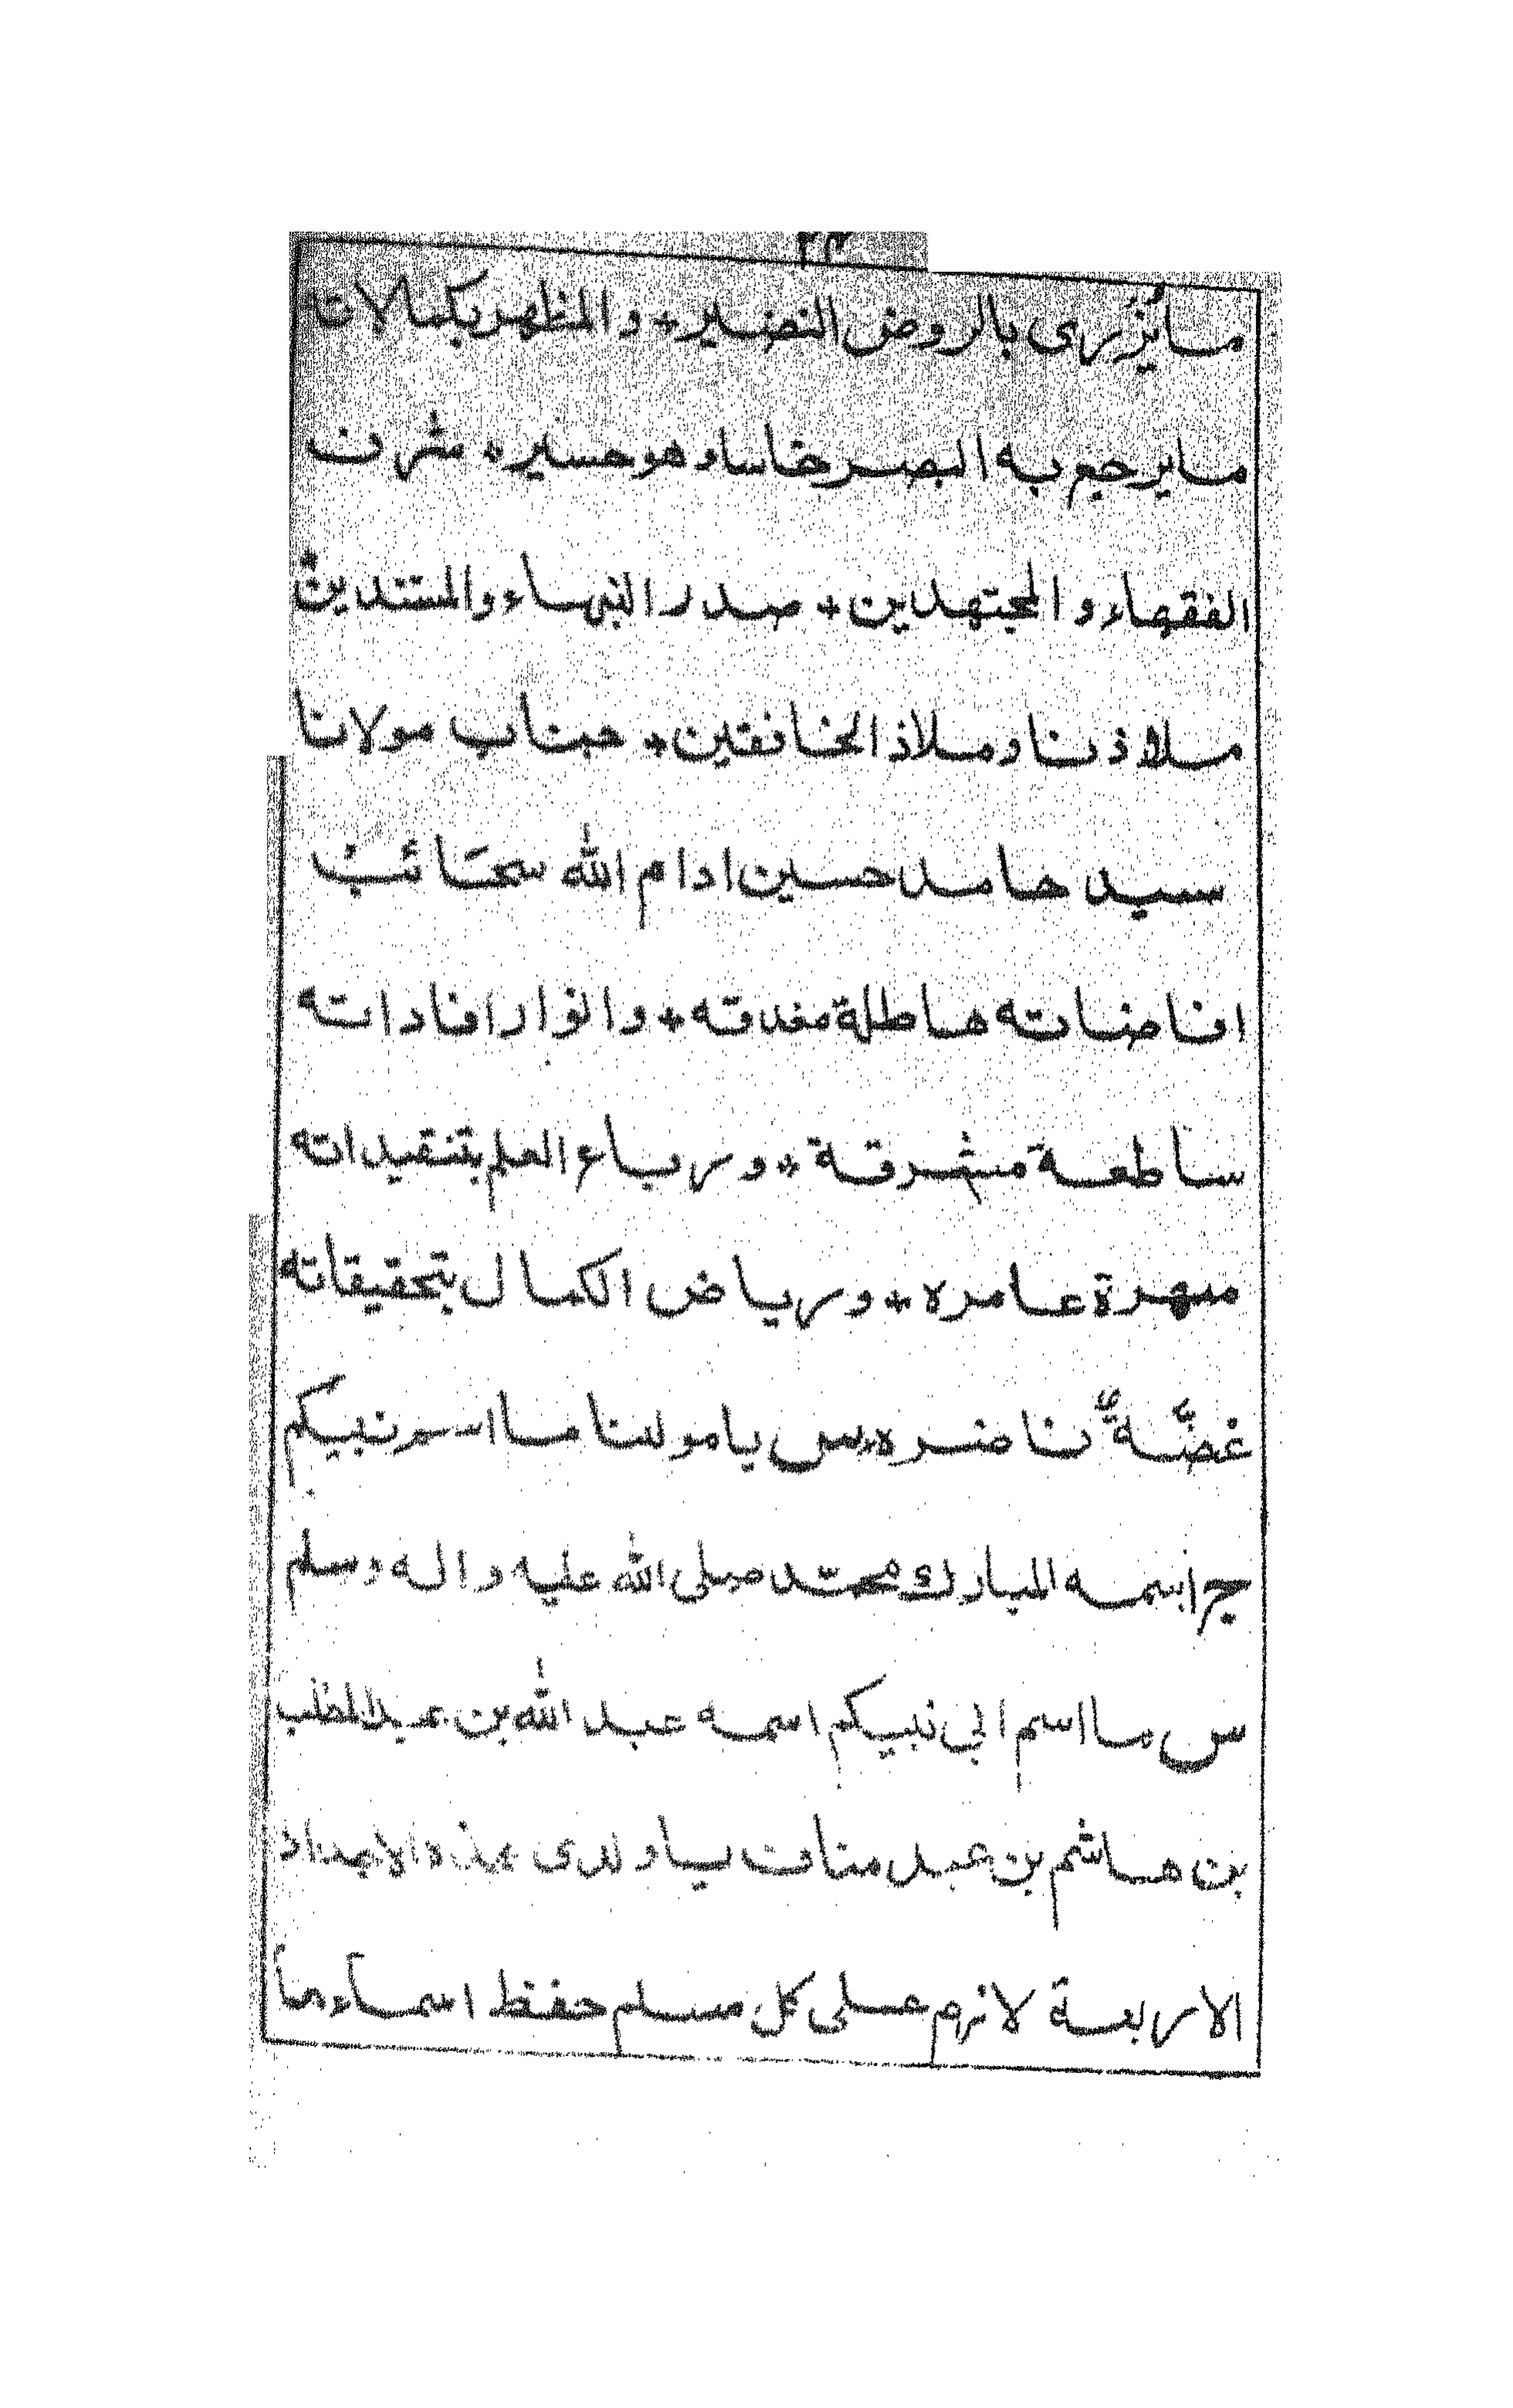 ما يُزري بالروض النضير * والمظهر بكمالاتا
ما يرجع به البصر خاسا وهو حسير * شرف
الفقهاء والمجتهدين * صدر النبهاء والمتتدين
ملاذنا وملاذ الخافقين * جناب مولانا
سيد حامد حسين ادام الله سحَائبُ
افاضاته هاطلة مغدقه * وانوار افاداته
ساطعة مشرقة * ورباع العلم بتنقيداته
مبهرة عامره * ورياض الكمال بتحقيقاته
غضّةً ناضره * س يا مولانا ما اسم نبيكم
ج اسمه المبارك محمّد صلى الله عليه واله وسلم
س ما اسم ابي نبيكم اسمه عبد الله بن عبد المطلب
بن هاشم بن عبد مناف يا ولدى هذه الاجداد
الاربعة لازم على كل مسلم حفظ اسمآءها